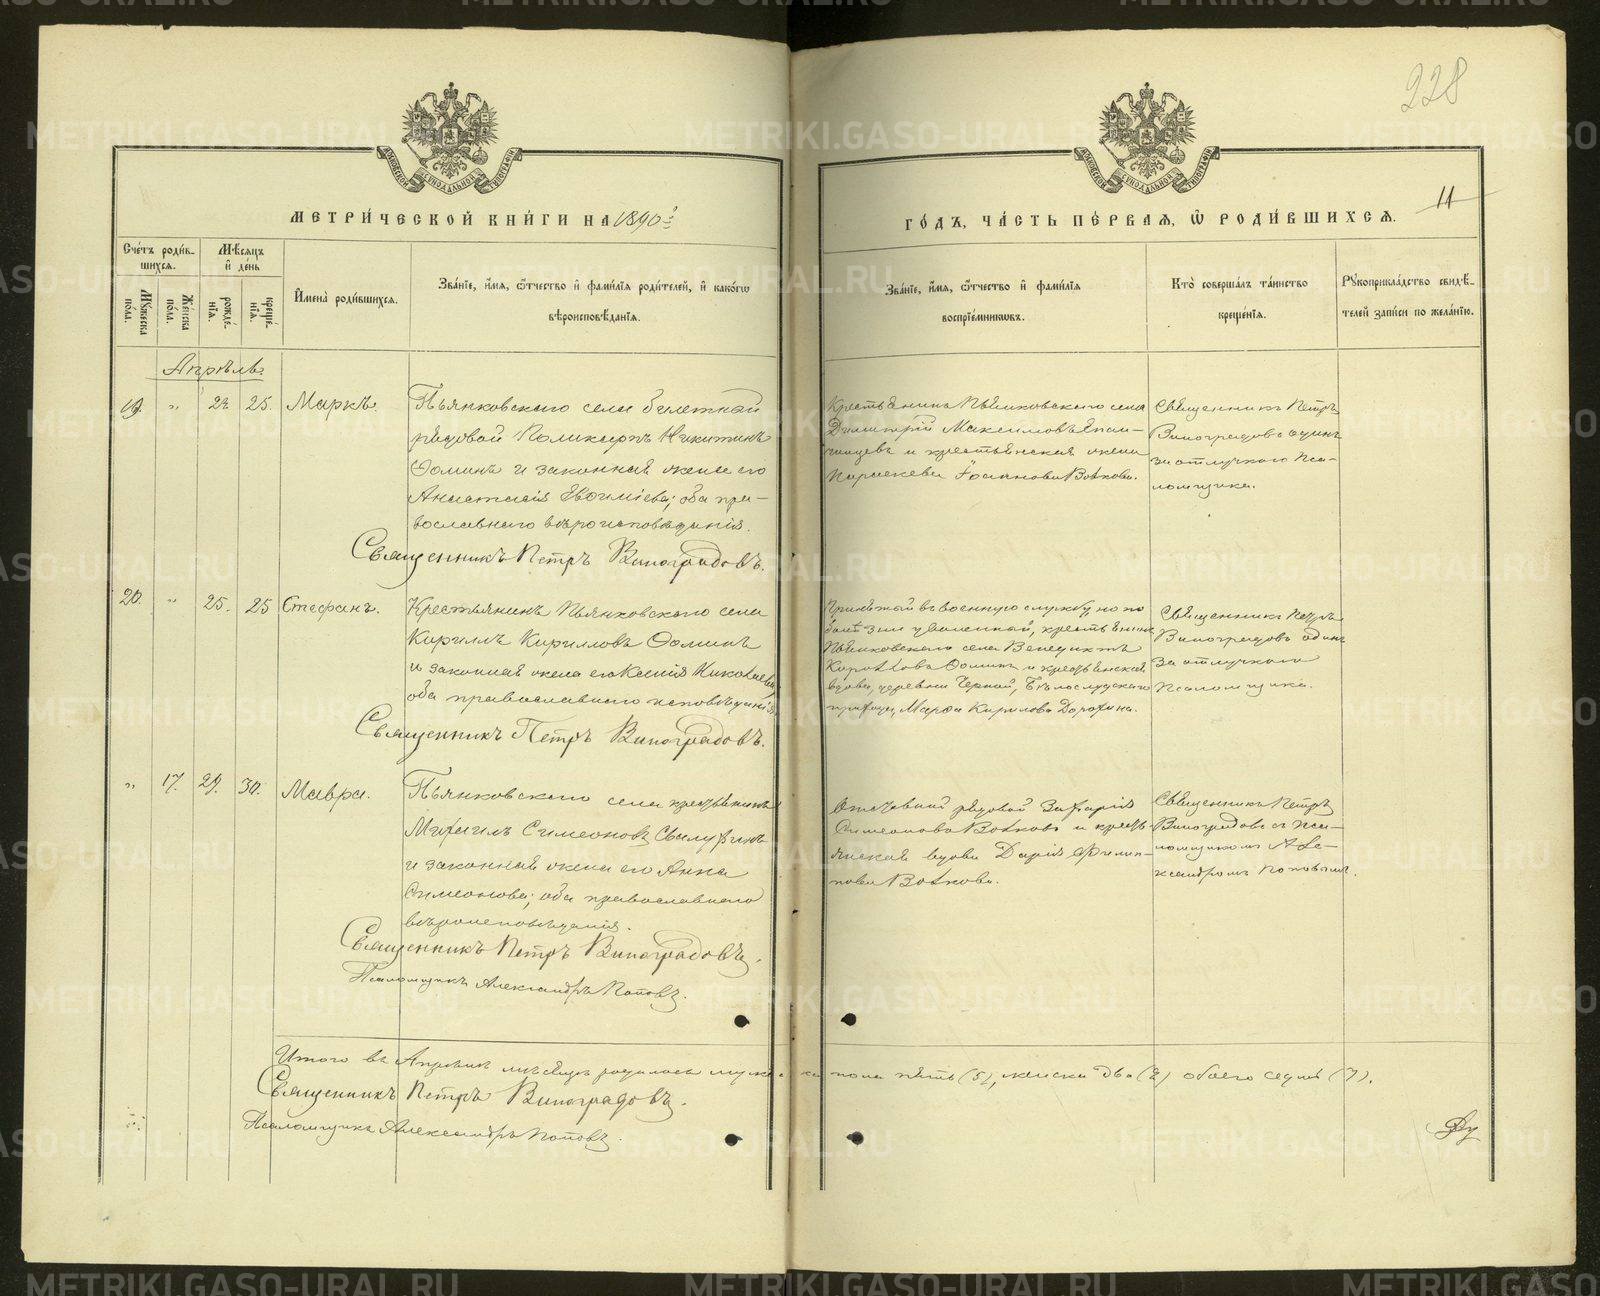 228
МОСКОВСКОЙ СѴНОДАЛЬНОЙ ТИПОГРАФІИ
МОСКОВСКОЙ СѴНОДАЛЬНОЙ ТИПОГРАФІИ
МЕТРИ́ЧЕСКОЙ КНИ́ГИ НА 1890й
ГО́ДЪ, ЧА́СТЬ ПЕ́РВАЯ, Ѡ РОДИ́ВШИХСЯ.
11
Сче́тъ роди́в-
шихся.
Мѣ́сяцъ
и҆ де́нь
Мꙋ́жеска по́ла.
Же́нска по́ла.
рожде́нїѧ.
креще́нїѧ.
И҆мена̀ роди́вшихсѧ.
Зва́нїе, и҆́мѧ, ѻ҆́тчество и҆ фами́лїѧ роди́телей, и҆ како́гѡ
вѣроисповѣ́данїѧ.
Зва́нїе, и҆́мѧ, ѻ҆́тчество и҆ фами́лїѧ
воспрїе́мникѡвъ.
Кто̀ соверша́лъ та́инство
креще́нїѧ.
Рꙋкоприкла́дство свидѣ́-
телей за́писи по жела́нїю.
Апрѣль.
19. " 24. 25. Маркъ.
Пьянковскаго села билетной
рядовой Поликарпъ Никитинъ
Ѳоминъ и законная жена его
Анастасія Евѳиміева; оба пра-
вославнаго вѣроисповѣданія.
Священникъ Петръ Виноградовъ.
Крестьянинъ Пьянковскаго села
Димитрій Максимовъ Епан-
чинцевъ и крестьянская жена
Параскева Іоаннова Волкова.
Священникъ Петръ
Виноградовъ одинъ
за отлучкою Пса-
ломщика.
20. " 25. 25 Стефанъ.
Крестьянинъ Пьянковскаго села
Кириллъ Кирилловъ Ѳоминъ
и законная жена его Ксенія Николаева,
оба православнаго исповѣданія.
Священникъ Петръ Виноградовъ.
Принятой въ военную службу, но по
болѣзни уволенной, крестьянинъ
Пьянковскаго села Венедиктъ
Кирилловъ Ѳоминъ и крестьянская
вдова, деревни Черной, Бѣлослудскаго
прихода, Марѳа Кирилова Дорохина.
Священникъ Петръ
Виноградовъ одинъ
за отлучкою
Псаломщика.
" 17. 29. 30. Мавра.
Пьянковскаго села крестьянинъ
Михаилъ Симеоновъ
и законная жена его Анна
Симеонова; оба православнаго
вѣроисповѣданія.
Священникъ Петръ Виноградовъ.
Псаломщикъ Александръ Поповъ.
Отставной рядовой Захарія
Симеоновъ Волковъ и кресть-
янская вдова Дарія Филип-
пова Волкова.
Священникъ Петръ
Виноградовъ съ пса-
ломщикомъ Але-
ксандромъ Поповымъ.
Итого въ Апрѣлѣ мѣсяцѣ родилось мужеска пола пять (5), женска два (2) обоего семь (7).
Священникъ Петръ Виноградовъ.
Псаломщикъ Александръ Поповъ.
METRIKI.GASO-URAL.RU